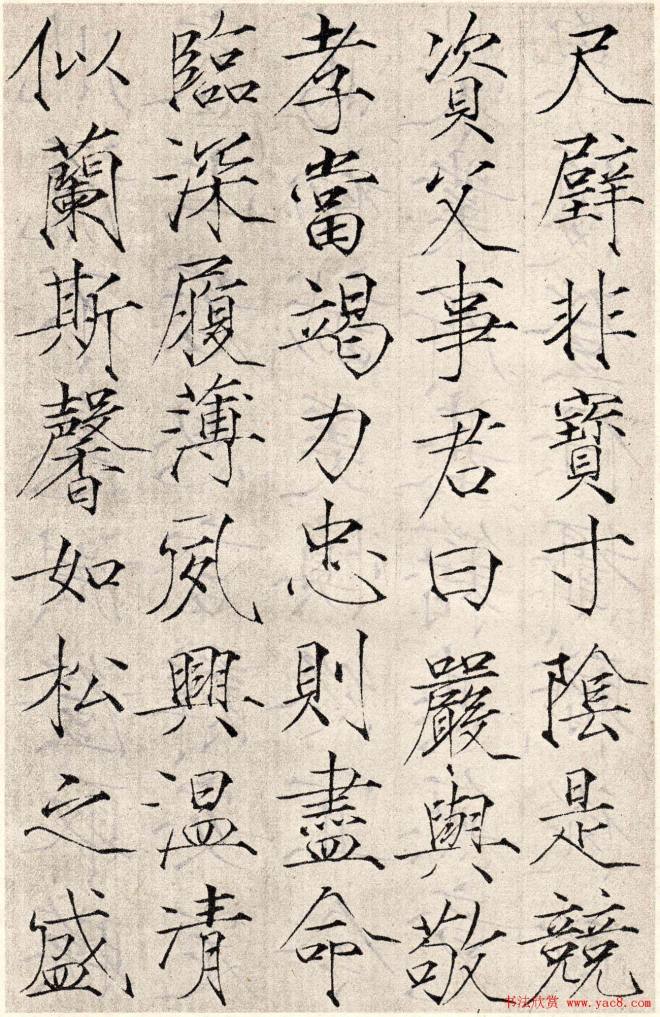 尺璧非寶寸陰是競
資父事君曰嚴與敬
孝當竭力忠則盡命
臨深履薄夙興温清
似蘭斯馨如松之盛
书法欣赏 www.yac8.com